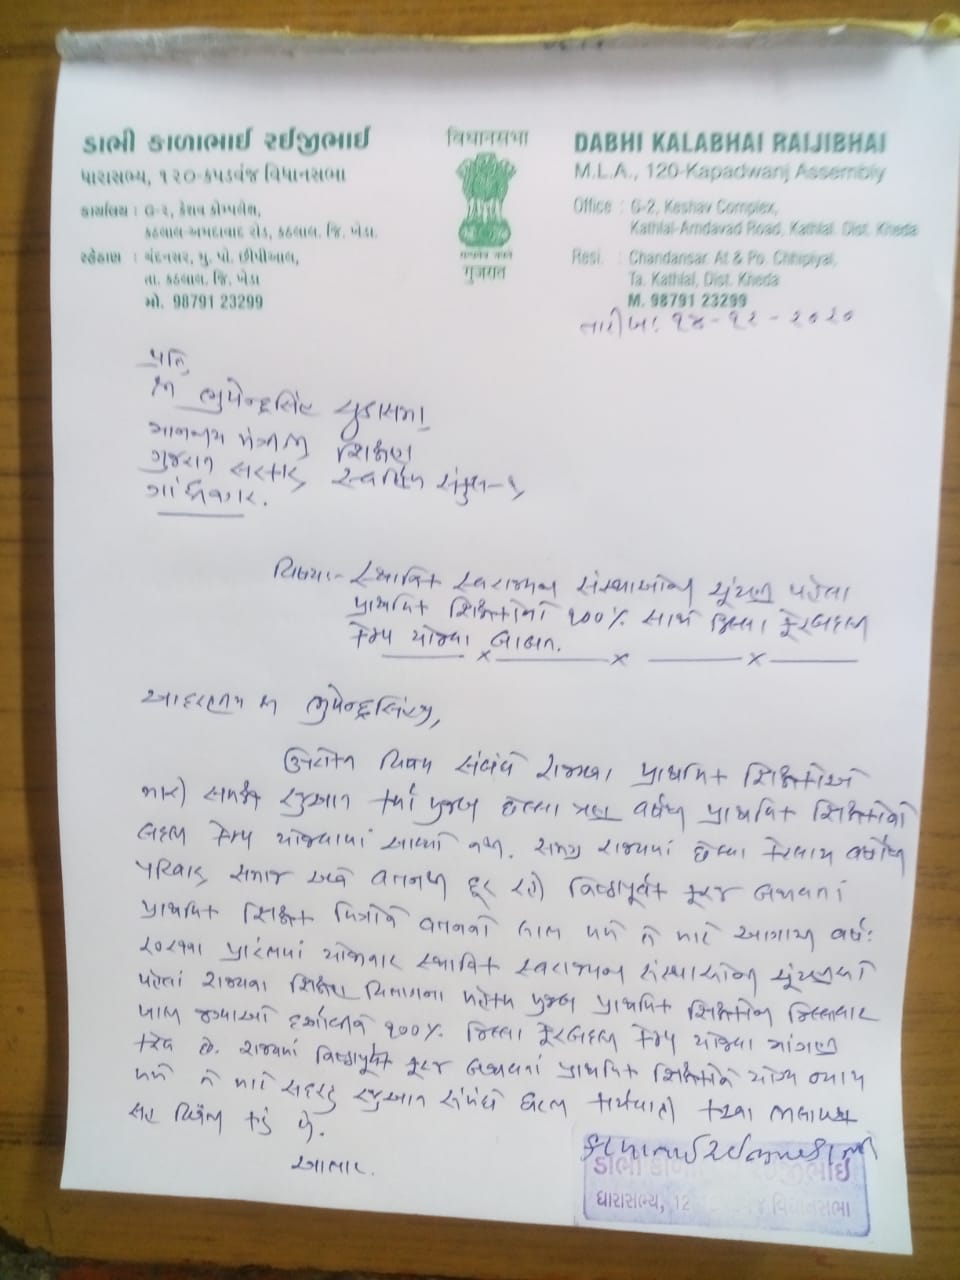 ડાભી કાળાભાઈ રઈજીભાઈ
ધારાસભ્ય, ૧૨૦-કપડવંજ વિધાનસભા
કાર્યાલય : G-૨, કેશવ કોમ્પલેક્ષ,
કઠલાલ-અમદાવાદ રોડ, કઠલાલ. જિ. ખેડા.
રહેઠાણ : ચંદનસર, મુ. પો. છીપીઆલ,
તા. કઠલાલ, જિ. ખેડા
મો. 98791 23299
વિધાનસભા
ગુજરાત
DABHI KALABHAI RAIJIBHAI
M.L.A., 120-Kapadwanj Assembly
Office : G-2, Keshav Complex,
Kathlal-Amdavad Road, Kathlal. Dist. Kheda
Resi. : Chandansar, At & Po. Chhipiyal,
Ta. Kathlal, Dist. Kheda
M. 98791 23299
તારીખ: ૧૪-૧૨-૨૦૨૦
પ્રતિ,
શ્રી ભુપેન્દ્રસિંહ ચુડાસમા
માનનીય મંત્રીશ્રી શિક્ષણ
ગુજરાત સરકાર, સ્વર્ણિમ સંકુલ-૧
ગાંધીનગર.
વિષય:- સ્થાનિક સ્વરાજ્યની સંસ્થાઓની ચૂંટણી પહેલા
પ્રાથમિક શિક્ષકોનો ૧૦૦% સાથે જિલ્લા ફેરબદલી
કેમ્પ યોજવા બાબત.
આદરણીય શ્રી ભુપેન્દ્રસિંહજી,
ઉપરોક્ત વિષય સંબંધે રાજ્યના પ્રાથમિક શિક્ષકોએ
મારી સમક્ષ રજુઆત કર્યા મુજબ છેલ્લા ત્રણ વર્ષથી પ્રાથમિક શિક્ષકોનો
બદલી કેમ્પ યોજવામાં આવ્યો નથી. સમગ્ર રાજ્યમાં છેલ્લા કેટલાય વર્ષોથી
પરિવાર, સમાજ અને વતનથી દૂર રહી નિષ્ઠાપૂર્વક ફરજ બજાવતાં
પ્રાથમિક શિક્ષક મિત્રોને વતનનો લાભ મળે તે માટે આગામી વર્ષ:
૨૦૨૧ના પ્રારંભમાં યોજાનાર સ્થાનિક સ્વરાજ્યની સંસ્થાઓની ચૂંટણીઓ
પહેલાં રાજ્યના શિક્ષણ વિભાગના મહેકમ મુજબ પ્રાથમિક શિક્ષકોની જિલ્લાવાર
ખાલી જગ્યાઓ દર્શાવીને ૧૦૦% જિલ્લા ફેરબદલી કેમ્પ યોજવા માંગણી
કરેલ છે. રાજ્યમાં નિષ્ઠાપૂર્વક ફરજ બજાવતાં પ્રાથમિક શિક્ષકોને યોગ્ય ન્યાય
મળે તે માટે સદરહુ રજુઆત સંબંધે ઘટતી કાર્યવાહી કરવા ભલામણ
સહ વિનંતી કરું છું.
આભાર.
ડાભી કાળાભાઈ રઈજીભાઈ
ધારાસભ્ય, 12 વિધાનસભા